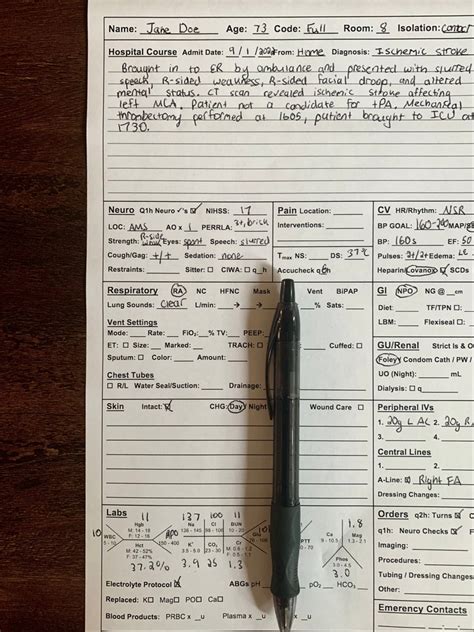 Name: Jane Doe Age: 73 Code: Full Room: 8 Isolation: Contact
Hospital Course Admit Date: 9/1/2022 From: Home Diagnosis: Ischemic stroke
Brought in to ER by ambulance and presented with slurred
speech, R-sided weakness, R-sided facial droop, and altered
mental status. CT scan revealed ischemic stroke affecting
left MCA. Patient not a candidate for tPA. Mechanical
thrombectomy performed at 1605, patient brought to ICU at
1730.
Neuro Q1h Neuro ✓'s NIHSS: 17
LOC: AMS AO x 1 PERRLA: 3+, brisk
Strength: R-side weak Eyes: spont Speech: slurred
Cough/Gag: +/+ Sedation: none
Restraints: Sitter: CIWA: q_h
Pain Location:
Interventions:
Tmax NS: DS: 37°C
Accucheck q6h
CV HR/Rhythm: NSR
BP GOAL: 160-200 MAP/SB
BP: 160s EF: 50
Pulses: 2+/2+ Edema: LE
Heparin/Lovanox SCDs
Respiratory RA NC HFNC Mask Vent BiPAP
Lung Sounds: Clear L/min: % Sats:
Vent Settings
Mode: Rate: FiO2: % TV: PEEP:
ET: Size: Marked: TRACH: Cuffed:
Sputum: Color: Amount:
Chest Tubes
R/L Water Seal/Suction: Drainage:
GI NPO NG @ cm
Diet: TF/TPN
LBM: Flexiseal
GU/Renal Strict Is & O
Foley Condom Cath / PW /
UO (Night): mL
Dialysis: q
Skin Intact: CHG: Day Night Wound Care
Peripheral IVs
1. 20g L AC 2. 20g R
3. 4.
Central Lines
1.
A-Line: Right FA
Dressing Changes:
Labs
11 137 100 11 1.8
Hgb Na Cl BUN
M: 14 - 18
F: 12 - 16
10 WBC
5 - 10
150 - 400
Hct
M: 42 - 52%
F: 37 - 47%
K+ CO2 Cr Glu
3.5 - 5.0 23 - 30
Ca Mg
9 - 10.5 1.3 - 2.1
Phos
3.0 - 4.5
37.2% 3.9 25 1.3 3.0
Electrolyte Protocol ABGs pH pO2 HCO3
Replaced: K Mag PO4 Ca
Blood Products: PRBC x _u Plasma x _u
Orders q2h: Turns
q1h: Neuro Checks
Imaging:
Procedures:
Tubing / Dressing Changes
Other:
Emergency Contacts